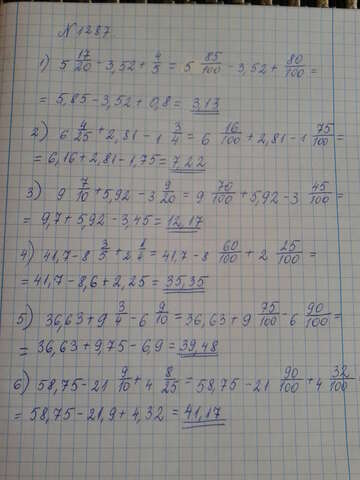 N1287.
1) 5 17/20 - 3,52 + 4/5 = 5 85/100 - 3,52 + 80/100 =
= 5,85 - 3,52 + 0,8 = 3,13
2) 6 4/25 + 2,81 - 1 3/4 = 6 16/100 + 2,81 - 1 75/100 =
= 6,16 + 2,81 - 1,75 = 7,22
3) 9 7/10 + 5,92 - 3 9/20 = 9 70/100 + 5,92 - 3 45/100 =
= 9,7 + 5,92 - 3,45 = 12,17
4) 41,7 - 8 3/5 + 2 1/4 = 41,7 - 8 60/100 + 2 25/100 =
= 41,7 - 8,6 + 2,25 = 35,35
5) 36,63 + 9 3/4 - 6 9/10 = 36,63 + 9 75/100 - 6 90/100 =
= 36,63 + 9,75 - 6,9 = 39,48
6) 58,75 - 21 9/10 + 4 8/25 = 58,75 - 21 90/100 + 4 32/100 =
= 58,75 - 21,9 + 4,32 = 41,17